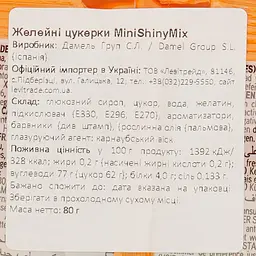 Желейні цукерки MiniShinyMix
Виробник: Дамель Груп С.Л. / Damel Group S.L.
(Іспанія)
Офіційний імпортер в Україні: ТОВ «Левітрейд», 81146,
с.Підберізці, вул. Галицька, 12; тел. +38(032)229-5550, site:
levitrade.com.ua
Склад: глюкозний сироп, цукор, вода, желатин,
підкислювач (Е330, Е296, Е270), ароматизатори,
барвники (див штамп), (рослинна олія (пальмова),
глазуруючі агент: карнаубський віск
Поживна цінність у 100 г продукту: 1392 кДж/
328 ккал; жири 0,2 г (насичені жирні кислоти 0,2 г);
вуглеводи 77 г (цукор 62 г); білки 4,0 г; сіль 0,133 г.
Бажано спожити до: дата вказана на упаковці
Зберігати в прохолодному сухому місці.
Маса нетто: 80 г